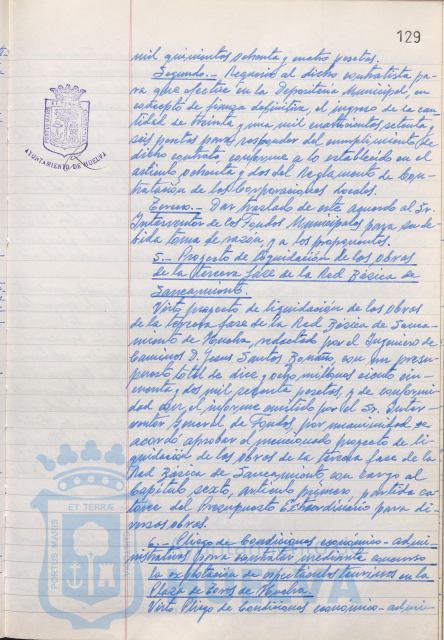 129
mil quinientos ochenta y cuatro pesetas.
Segundo.- Requerir al dicho contratista pa-
ra que efectúe en la Depositaría Municipal, en
concepto de fianza definitiva, el ingreso de la can-
tidad de treinta y una mil cuatrocientos setenta y
seis pesetas para responder del cumplimiento de
dicho contrato, conforme a lo establecido en el
artículo ochenta y dos del Reglamento de Con-
tratación de las Corporaciones Locales.
Tercero.- Dar traslado de este acuerdo al Sr.
Interventor de los Fondos Municipales para su de-
bida toma de razón, y a los proponentes.
5.- Proyecto de liquidación de las obras
de la tercera fase de la Red Básica de
Saneamiento.
Visto proyecto de liquidación de las obras
de la tercera fase de la Red Básica de Sanea-
miento de Huelva, redactado por el Ingeniero de
Caminos D. Jesús Santos, con un presu-
puesto total de diez y ocho millones ciento cin-
cuenta y dos mil setenta pesetas, y de conformi-
dad con el informe emitido por el Sr. Inter-
ventor General de Fondos, por unanimidad se
acordó aprobar el mencionado proyecto de li-
quidación de las obras de la tercera fase de la
Red Básica de Saneamiento, con cargo al
Capítulo sexto, artículo primero, partida ca-
torce del Presupuesto Extraordinario para di-
versas obras.
6.- Pliego de Condiciones económico-admi-
nistrativas para contratar mediante concurso
la explotación de espectáculos taurinos en la
Plaza de Toros de Huelva.
Visto Pliego de Condiciones económico-admi-
AYUNTAMIENTO DE HUELVA
PORTUS MARIS
ET TERRÆ